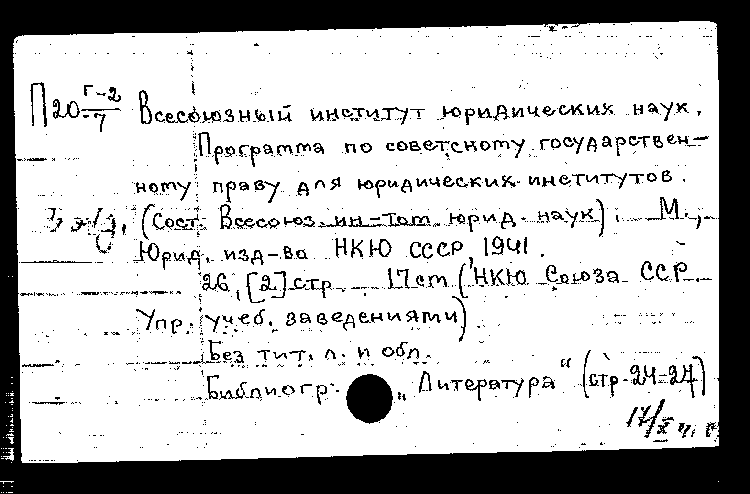 П20 Г-2/-7 Всесоюзный институт юридических наук.
Программа по советскому государствен-
ному праву для юридических институтов.
(Сост. Всесоюз. ин-том юрид. наук). М.,
Юрид. изд-во НКЮ СССР, 1941.
26, [2] стр. 17 ст (НКЮ Союза ССР.
Упр. учеб. заведениями)
Без тит. л. и обл.
Библиогр: „Литература" (стр. 24-27)
17/X